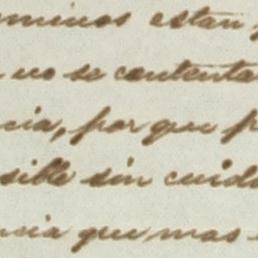 minos estan
no se contenta
cia, por que p
sible sin cuida
ncia que mas